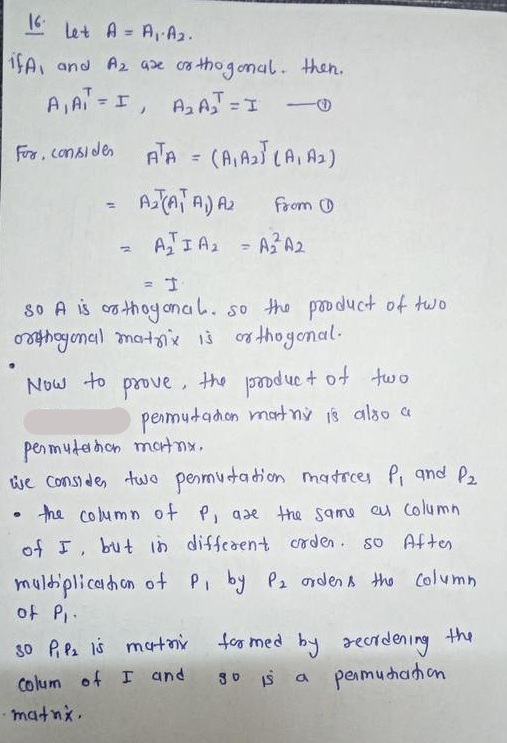 16. Let A = A₁·A₂.
if A₁ and A₂ are orthogonal. then.
A₁A₁ᵀ = I , A₂A₂ᵀ = I —①
For, consider AᵀA = (A₁A₂)ᵀ(A₁A₂)
= A₂ᵀ(A₁ᵀA₁)A₂ From ①
= A₂ᵀ I A₂ = A₂²A₂
= I
so A is orthogonal. so the product of two
orthogonal matrix is orthogonal.
• Now to prove, the product of two
permutation matrix is also a
permutation matrix.
We consider two permutation matrces P₁ and P₂
• the column of P₁ are the same as column
of I, but in different order. so After
multiplication of P₁ by P₂ orders the column
of P₁.
so P₁P₂ is matrix formed by reordering the
colum of I and so is a permutation
matrix.